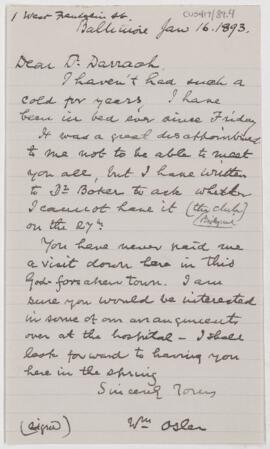 CUS417/84.4
1 West Franklin St.
Baltimore Jan 16. 1893.
Dear Dr. Darrach,
I haven't had such a
cold for years, I have
been in bed ever since Friday
It was a great disappointment
to me not to be able to meet
you all, but I have written
to Dr. Boker to ask whether
I cannot have it (the club)
on the 27th.
You have never paid me
a visit down here in this
God-forsaken town. I am
sure you would be interested
in some of our arrangements
over at the hospital – I shall
look forward to having you
here in the spring
Sincerely Yours
(signed) Wm Osler